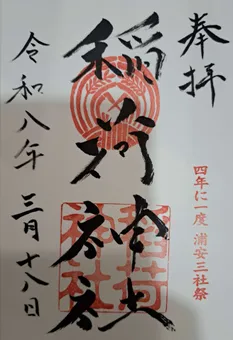 奉拝
四年に一度 浦安三社祭
稲荷神社
稲荷神社
令和八年 三月 十八日